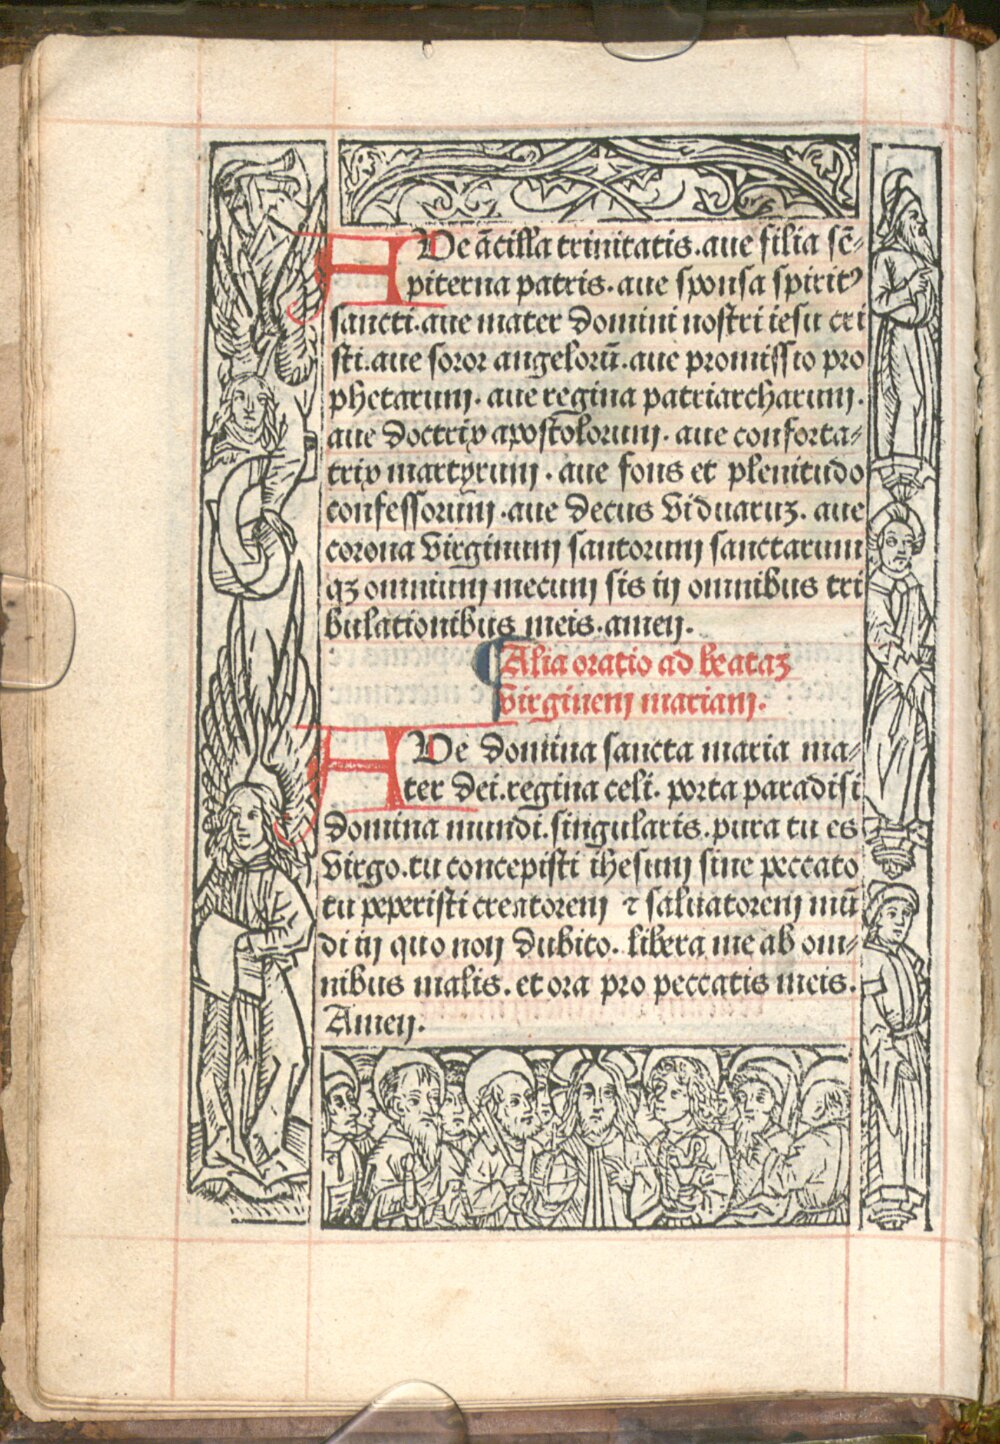 AUe ācilla trinitatis.aue filia sē⸗
piterna patris.aue sponsa spiritꝰ
sancti.aue mater domini nostri iesu cri
sti.aue soror angelorū.aue promissio pro
phetarum.aue regina patriarcharum.
aue doctrix apostolorum.aue conforta⸗
trix martyrum.aue fons et plenitudo
confessorum.aue decus viduaruꝫ.aue
corona virginum santorum sanctarum
qꝫ omnium mecum sis in omnibus tri
bulationibus meis.amen.
¶Alia oratio ad beataꝫ
virginem mariam.
AUe domina sancta maria ma⸗
ter dei.regina celi.porta paradisi
domina mundi.singularis.pura tu es
virgo.tu concepisti ihesum sine peccato
tu peperisti creatorem ⁊ saluatorem mū
di in quo non dubito.libera me ab om⸗
nibus malis.et ora pro peccatis meis.
Amen.